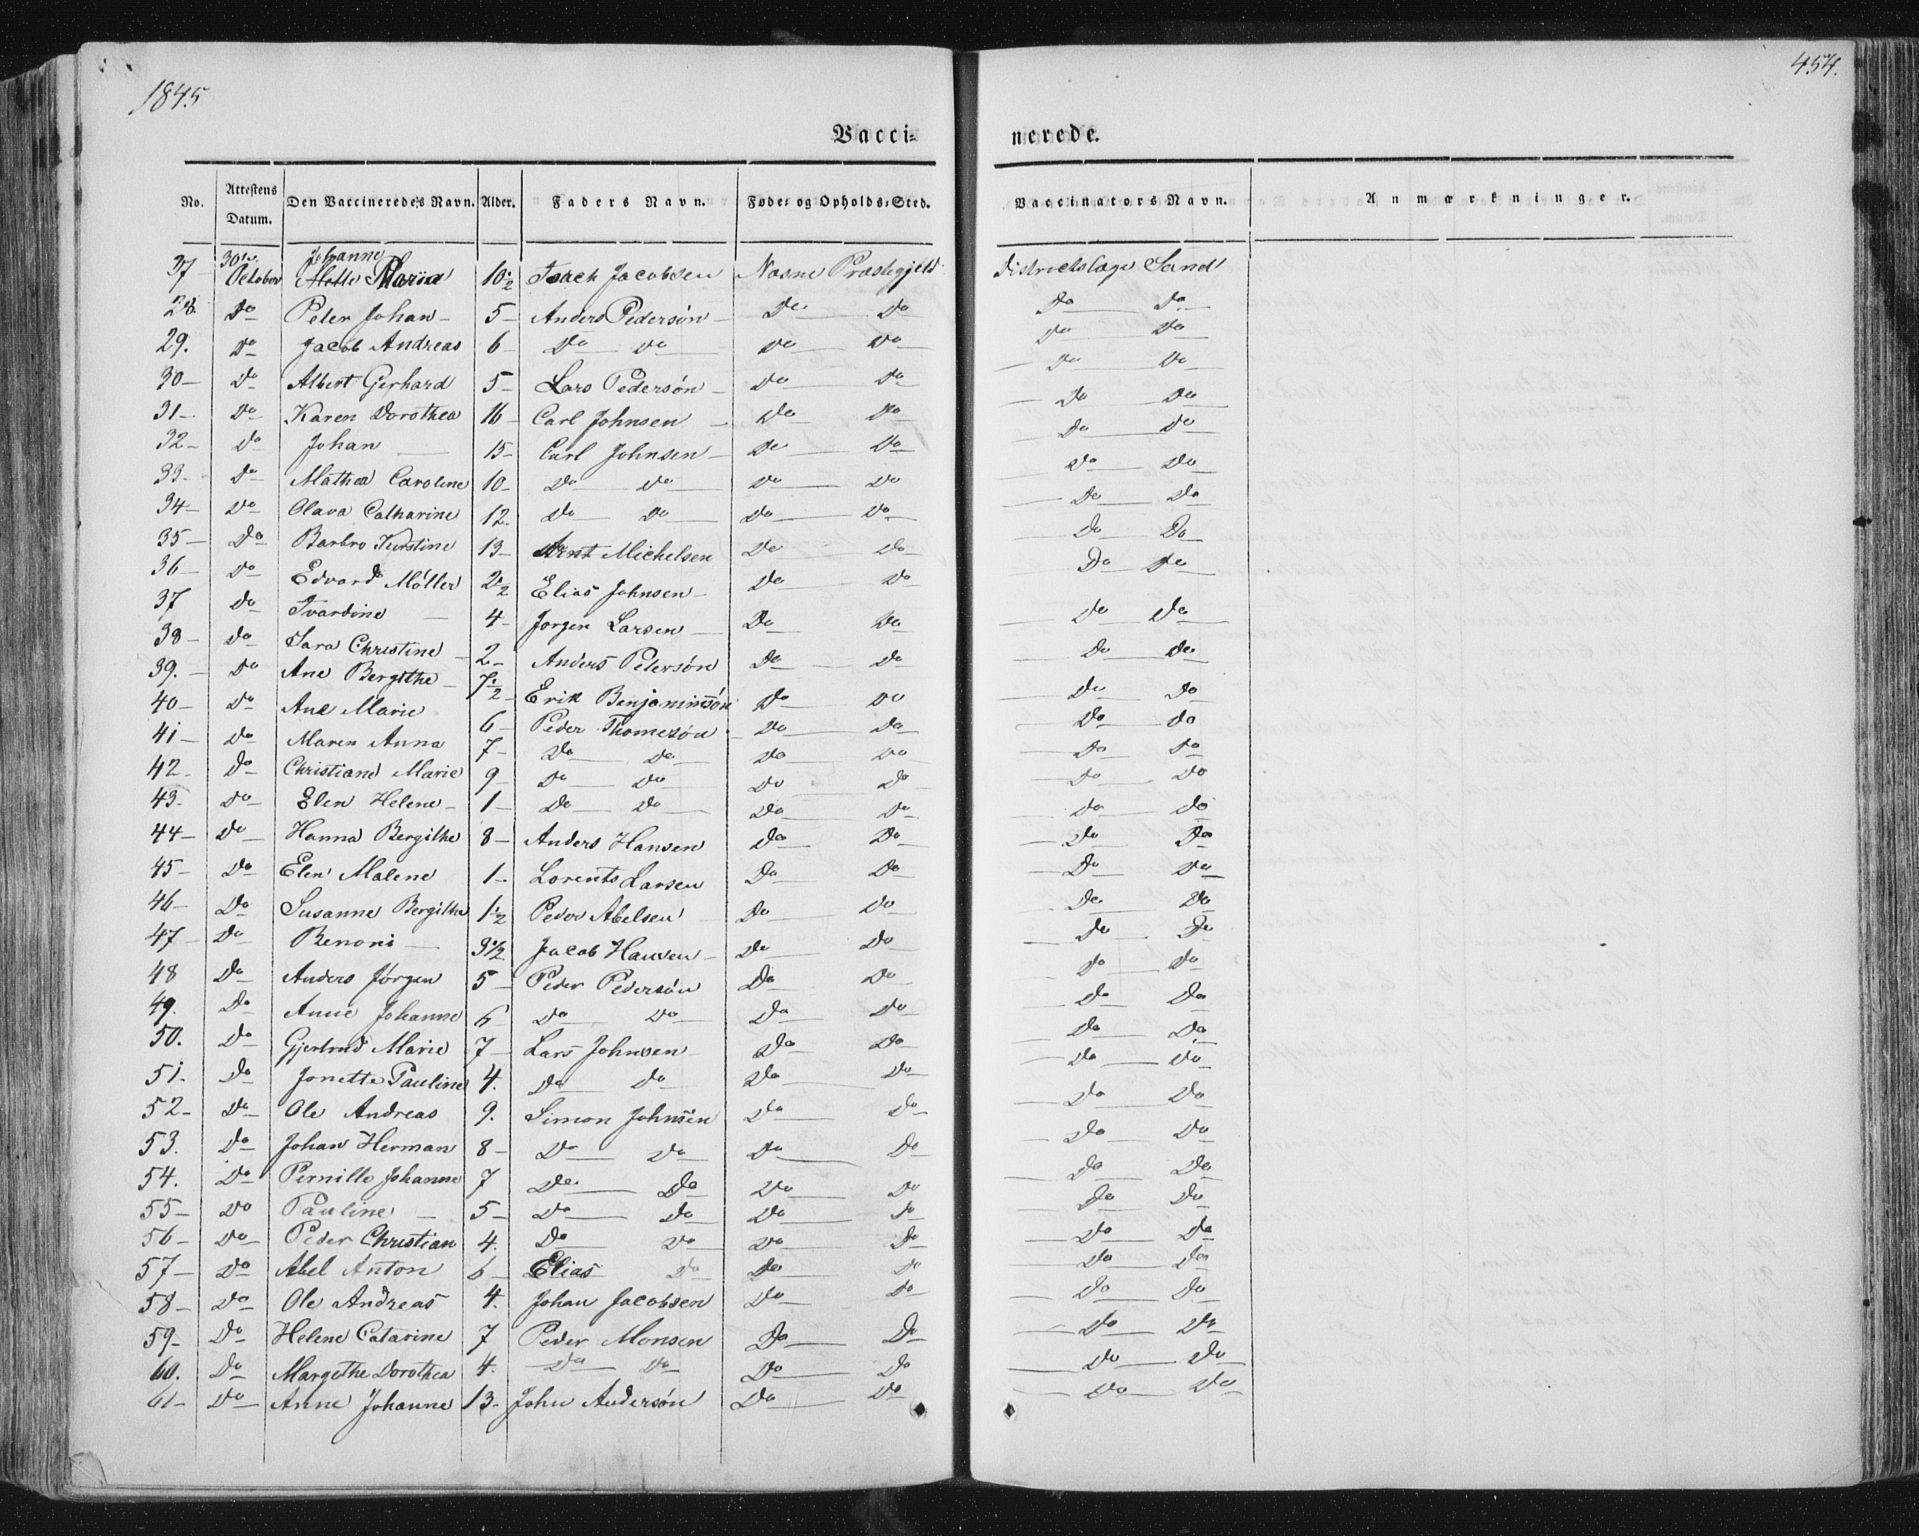 1845
454.
Vacci-
nerede.
No. Attestens Datum. Den Vaccineredes Navn. Alder. Faders Navn. Føde- og Opholds-Sted. Vaccinators Navn. Anmærkninger.
Johanne
37 30te October Maria 10 1/2 Isack Jacobsen Næsne Præstegjeld Districtslæge Sand
28 Do Peter Johan 5 Anders Pedersøn Do Do Do Do
29. Do Jacob Andreas 6 Do Do Do Do Do Do
30 Do Albert Gerhard 5 Lars Pedersøn Do Do Do Do
31 Do Karen Dorothea 16 Carl Johnsen Do Do Do Do
32 Do Johan 15 Carl Johnsen Do Do Do Do
33 Do Mathea Caroline 10 Do Do Do Do Do Do
34 Do Olava Catharine 12 Do Do Do Do Do Do
35 Do Barbro Kirstine 13 Arnt Michelsen Do Do Do Do
36 Do Edvard Møller 2 1/2 Elias Johnsen Do Do Do Do
37 Do Ivardine 4 Jørgen Larsen Do Do Do Do
38 Do Sara Christine 2 Anders Petersøn Do Do Do Do
39. Do Ane Bergithe 7 1/2 Erik Benjaminsøn Do Do Do Do
40 Do Ane Marie 6 Peder Thomesøn Do Do Do Do
41 Do Maren Anna 7 Do Do Do Do Do Do
42 Do Christiane Marie 9 Do Do Do Do Do Do
43 Do Elen Helene 1 Do Do Do Do Do Do
44 Do Hanna Bergithe 8 Anders Hansen Do Do Do Do
45 Do Elen Malene 1 Lorents Larsen Do Do Do Do
46 Do Susanne Bergithe 1 1/2 Peder Abelsen Do Do Do Do
47 Do Benoni 3 1/2 Jacob Hansen Do Do Do Do
48 Do Anders Jørgen 5 Peder Pedersøn Do Do Do Do
49. Do Anne Johanne 6 Do Do Do Do Do Do
50. Do Gjertrud Marie 7 Lars Johnsen Do Do Do Do
51. Do Jonette Pauline 4. Do Do Do Do Do Do
52 Do Ole Andreas 9. Simon Johnsen Do Do Do Do
53. Do Johan Herman 8 Do Do Do Do Do Do
54. Do Pernille Johanne 7 Do Do Do Do Do Do
55 Do Pauline 5 Do Do Do Do Do Do
56 Do Peder Christian 4. Do Do Do Do Do Do
57 Do Abel Anton 6 Elias Do Do Do Do Do
58 Do Ole Andreas 4. Johan Jacobsen Do Do Do Do
59 Do Helene Catarine 7 Peder Monsen Do Do Do Do
60. Do Margethe Dorothea 4. Do Do Do Do Do Do
61 Do Anne Johanne 13 John Andersøn Do Do Do Do